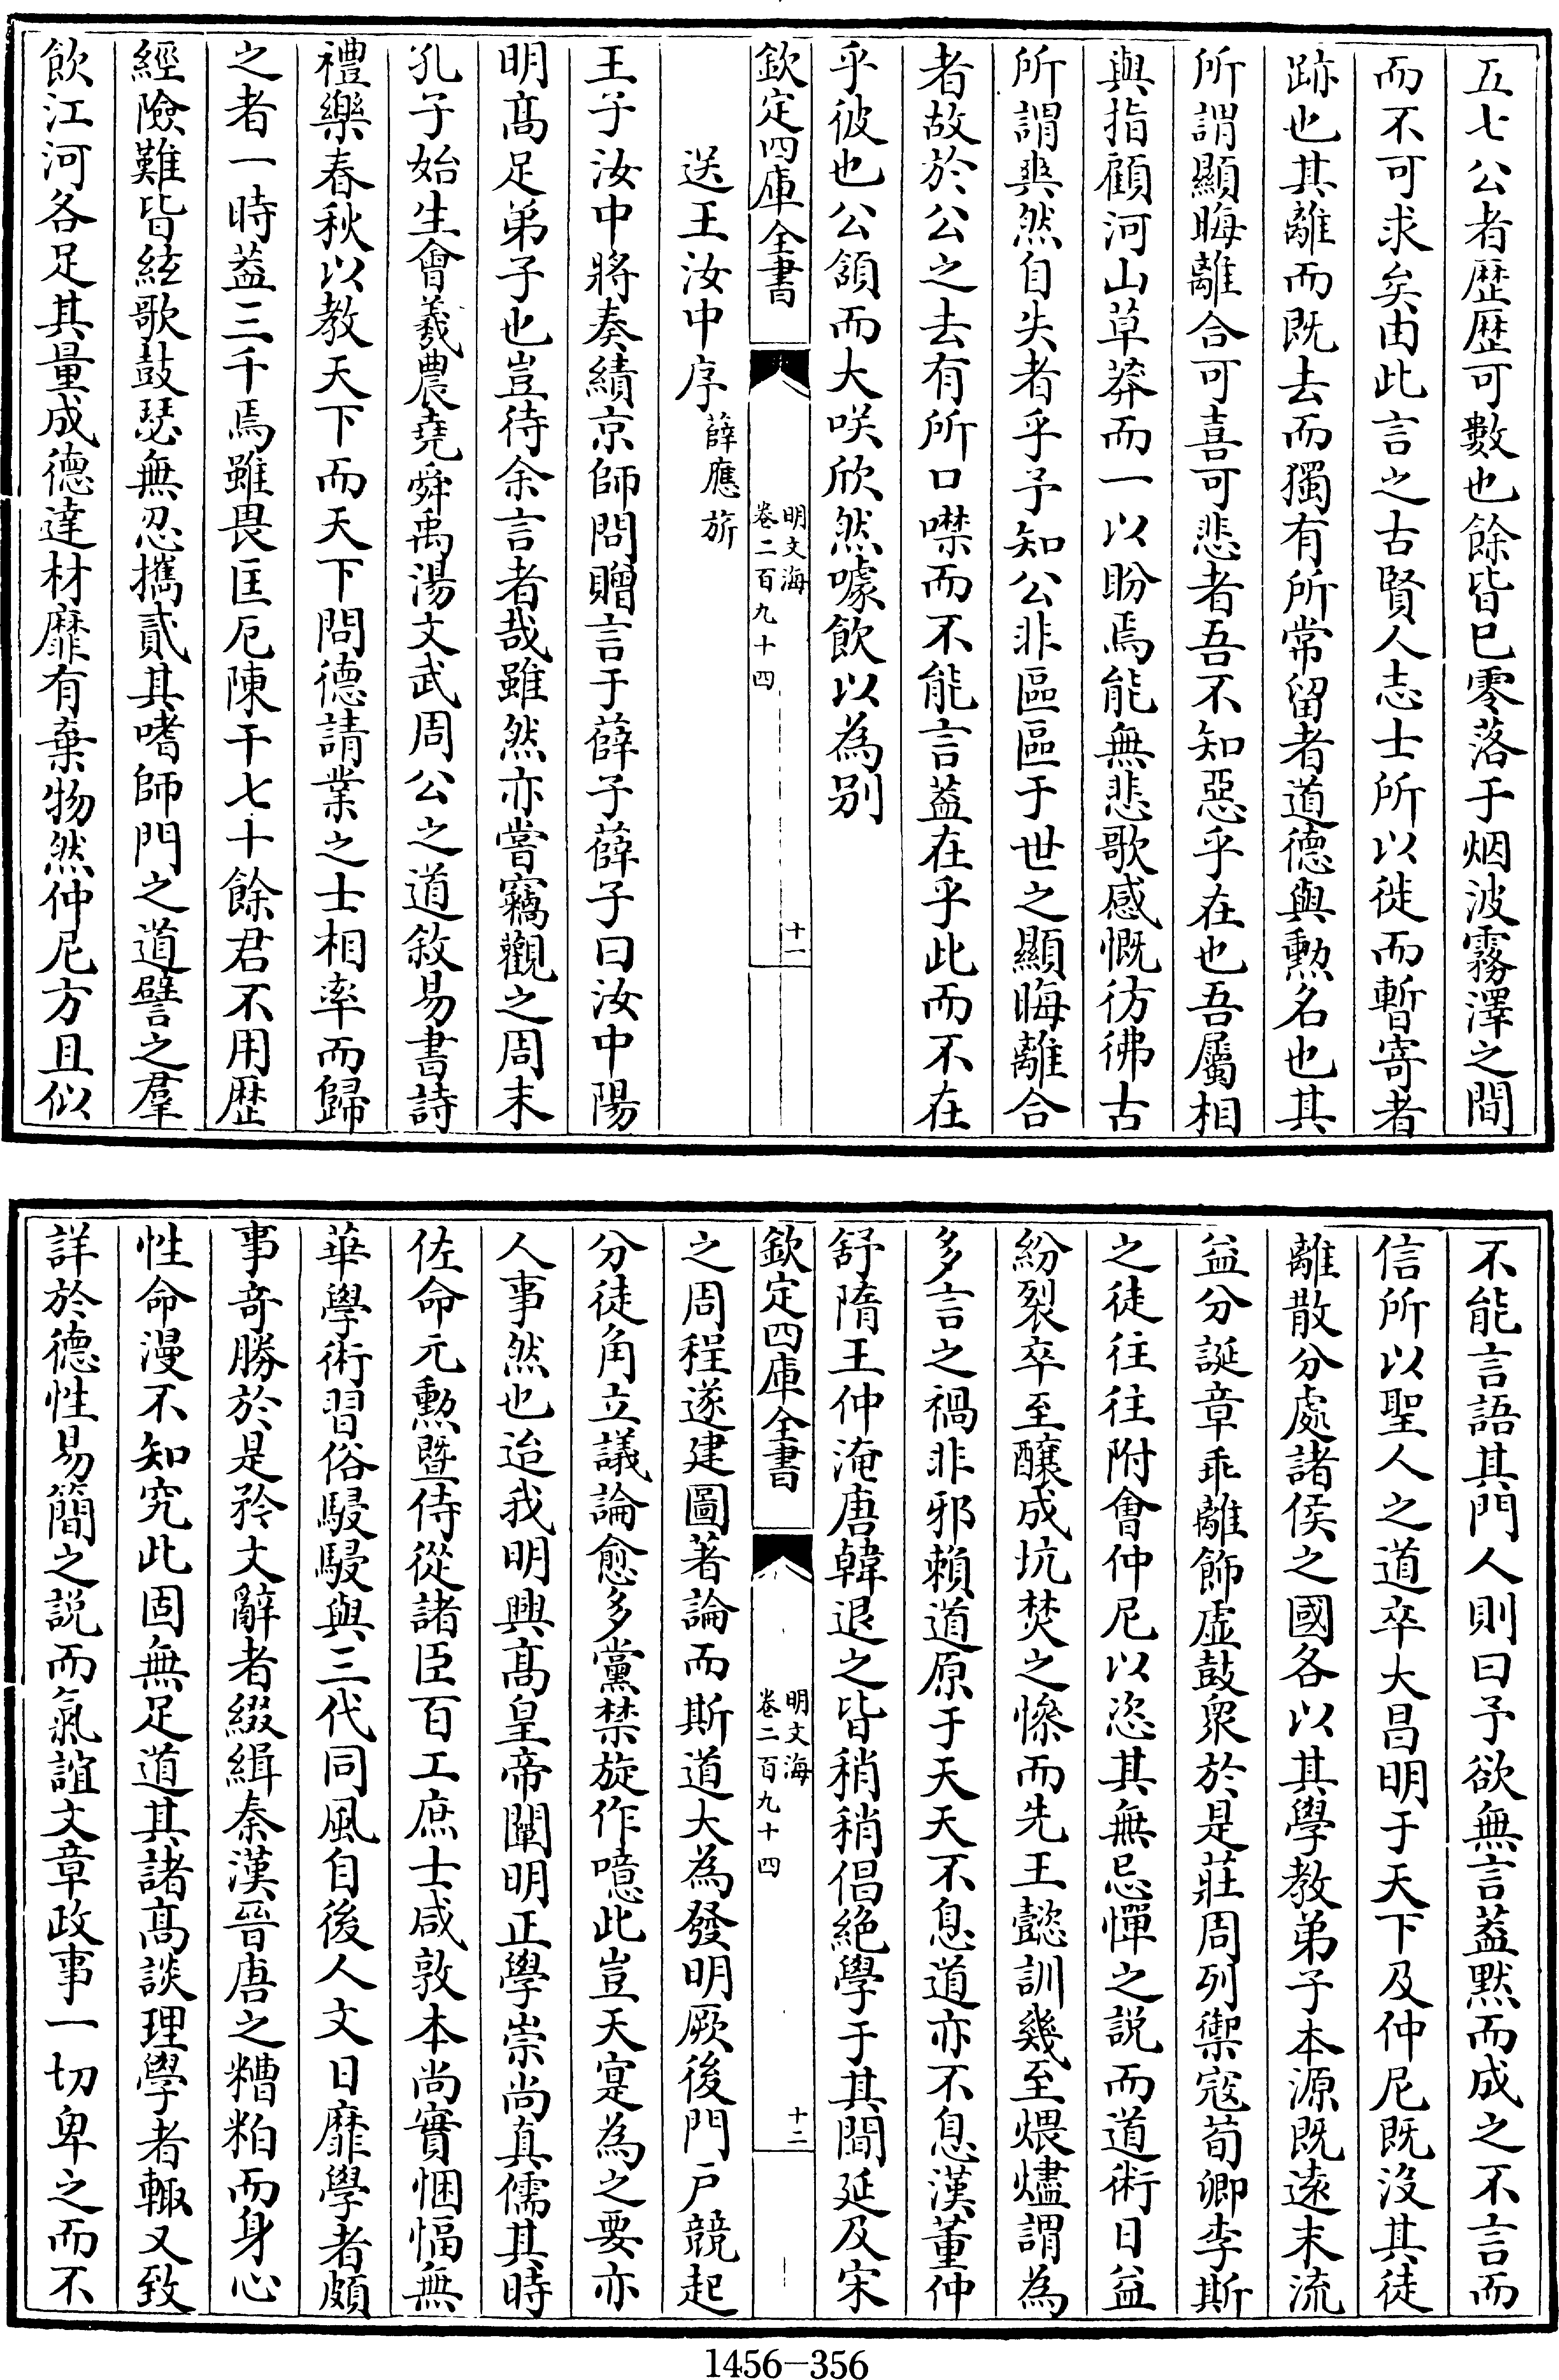 五七公者歴歴可數也餘皆已零落于烟波霧澤之間
而不可求矣由此言之古賢人志士所以徙而暫寄者
跡也其離而既去而獨有所常留者道德與勲名也其
所謂顯晦離合可喜可悲者吾不知惡乎在也吾屬相
與指顧河山草莽而一以盼焉能無悲歌感慨彷彿古
所謂㸑然自失者乎予知公非區區于世之顯晦離合
者故於公之去有所口噤而不能言葢在乎此而不在
乎彼也公頷而大咲欣然噱飲以為别
欽定四庫全書
明文海
卷二百九十四
十一
送王汝中序 薛應旂
王子汝中將奏績京師問贈言于薛子薛子曰汝中陽
明髙足弟子也豈待余言者哉雖然亦嘗竊觀之周末
孔子始生會羲農堯舜禹湯文武周公之道敘易書詩
禮樂春秋以教天下而天下問德請業之士相率而歸
之者一時葢三千焉雖畏匡厄陳干七十餘君不用歴
經險難皆絃歌鼓瑟無忍攜貳其嗜師門之道譬之羣
飲江河各足其量成德達材靡有棄物然仲尼方且似
不能言語其門人則曰予欲無言葢黙而成之不言而
信所以聖人之道卒大昌明于天下及仲尼既沒其徒
離散分處諸侯之國各以其學教弟子本源既逺末流
益分誕章乖離飾虛鼓衆於是莊周列禦寇荀卿李斯
之徒往往附會仲尼以恣其無忌憚之説而道術日益
紛裂卒至釀成坑焚之慘而先王懿訓幾至煨燼謂為
多言之禍非邪賴道原于天天不息道亦不息漢董仲
舒隋王仲淹唐韓退之皆稍稍倡絶學于其間延及宋
欽定四庫全書
明文海
卷二百九十四
十二
之周程遂建圖著論而斯道大為發明厥後門户競起
分徒角立議論愈多黨禁旋作噫此豈天寔為之要亦
人事然也迨我明興髙皇帝闡明正學崇尚真儒其時
佐命元勲暨侍從諸臣百工庶士咸敦本尚實悃愊無
華學術習俗駸駸與三代同風自後人文日靡學者頗
事竒勝於是矜文辭者綴緝秦漢晉唐之糟粕而身心
性命漫不知究此固無足道其諸髙談理學者輙又致
詳於德性易簡之説而氣誼文章政事一切卑之而不
1456-356